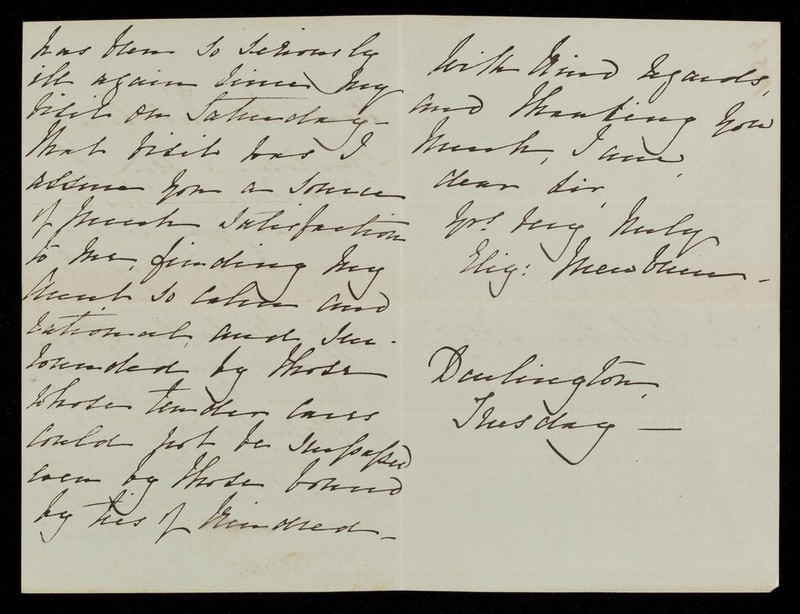 has been so seriously
ill again since my
visit on Saturday -
That visit was I
assure you a source
of much satisfaction
to me, finding my
Aunt so calm and
rational, and sur-
rounded by those
whose tender cares
could not be surpassed
even by those bound
by ties of kindred -
With kind regards,
and thanking you
much, I am,
dear Sir,
Yrs. very truly
Eliz: Mewburn -
Darlington,
Tuesday —